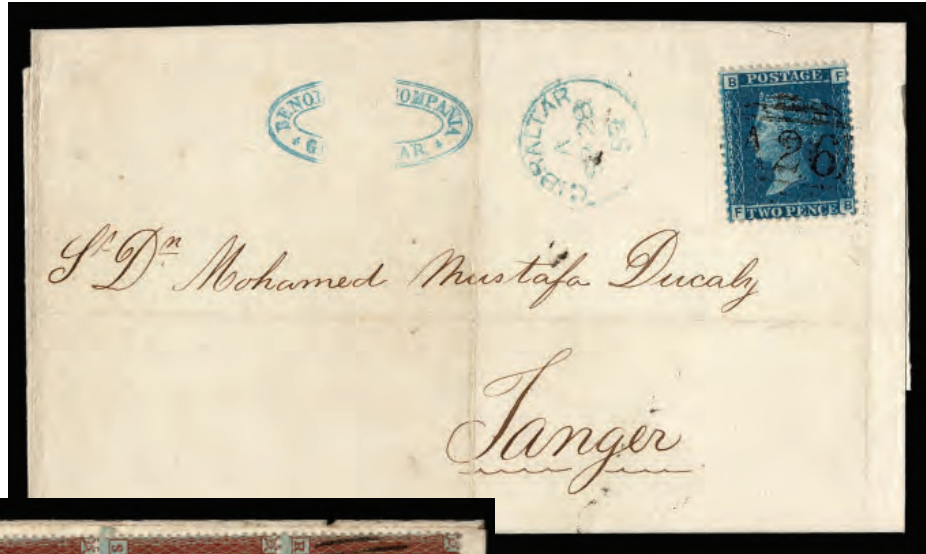 BENOL COMPANIA
G AR
GIBRALTAR
A
28
59
B POSTAGE F
A26
F TWO PENCE B
Sr. Dn. Mohamed Mustafa Ducaly
Tanger
S
R